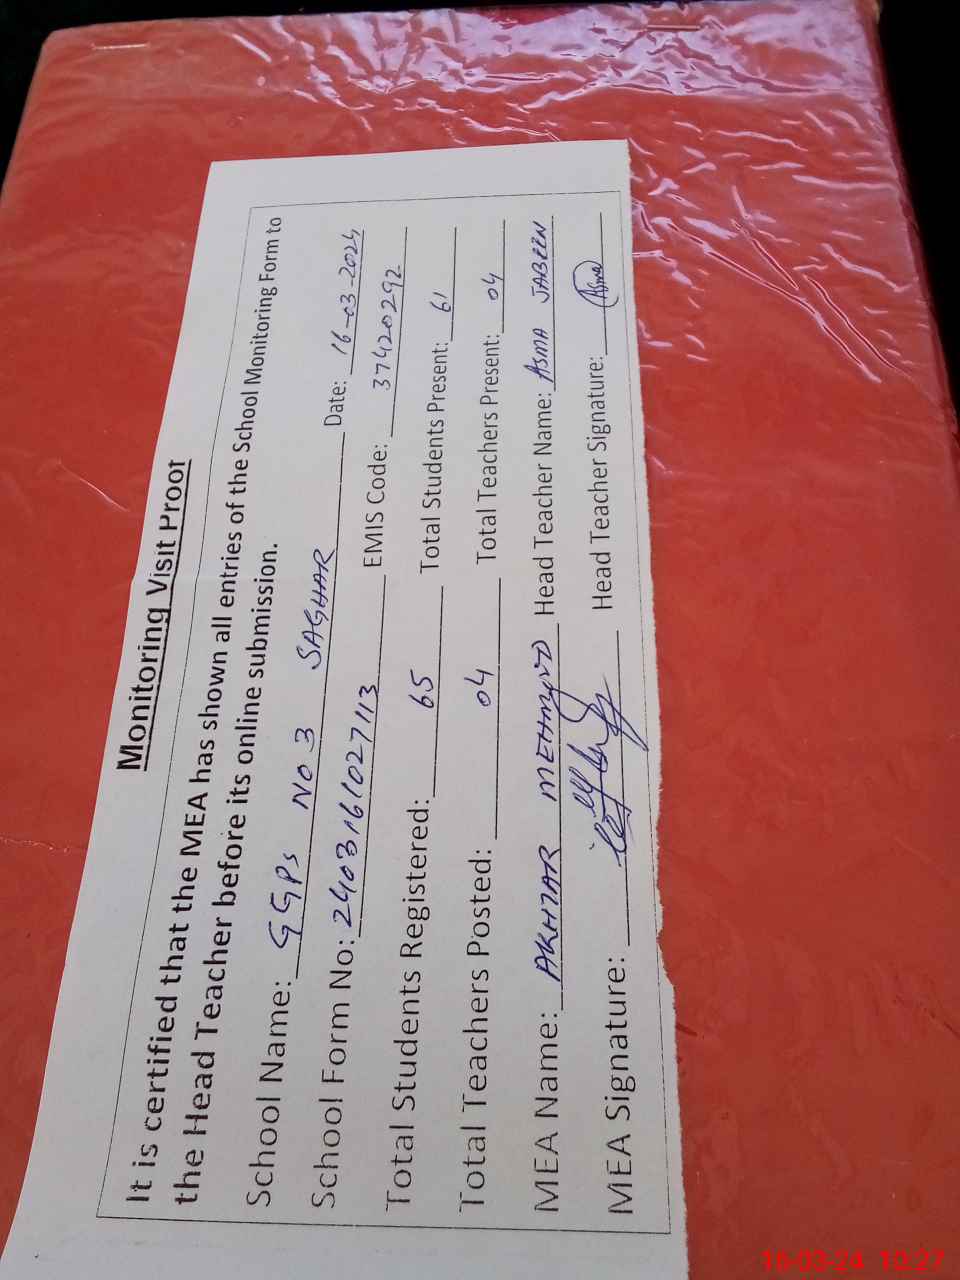 Monitoring Visit Proof
It is certified that the MEA has shown all entries of the School Monitoring Form to
the Head Teacher before its online submission.
School Name: GGPS NO 3 SAGHAR Date: 16-03-2024
School Form No: 240316161027113 EMIS Code: 37420292
Total Students Registered: 65 Total Students Present: 61
Total Teachers Posted: 04 Total Teachers Present: 04
MEA Name: AKHTAR MEHMOOD Head Teacher Name: ASMA JABEEN
MEA Signature: Head Teacher Signature: Asma
16-03-24 10:27